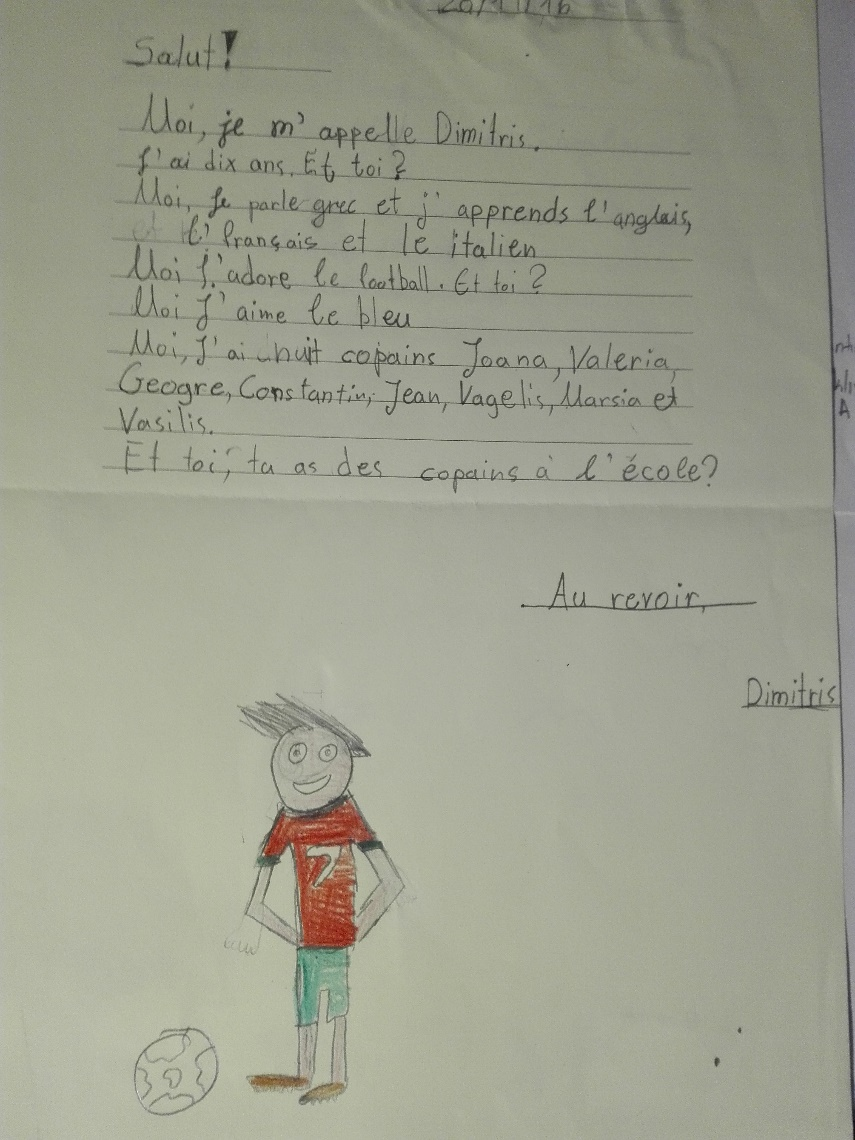 Salut!
Moi, je m'appelle Dimitris.
J'ai dix ans. Et toi?
Moi, je parle grec et j'apprends l'anglais,
et l'français et le italien
Moi j'adore le football. Et toi?
Moi J'aime le bleu
Moi, J'ai huit copains Joana, Valeria,
Geogre, Constantin, Jean, Vagelis, Marsia et
Vasilis.
Et toi, ta as des copains à l'école?
Au revoir,
Dimitris
7